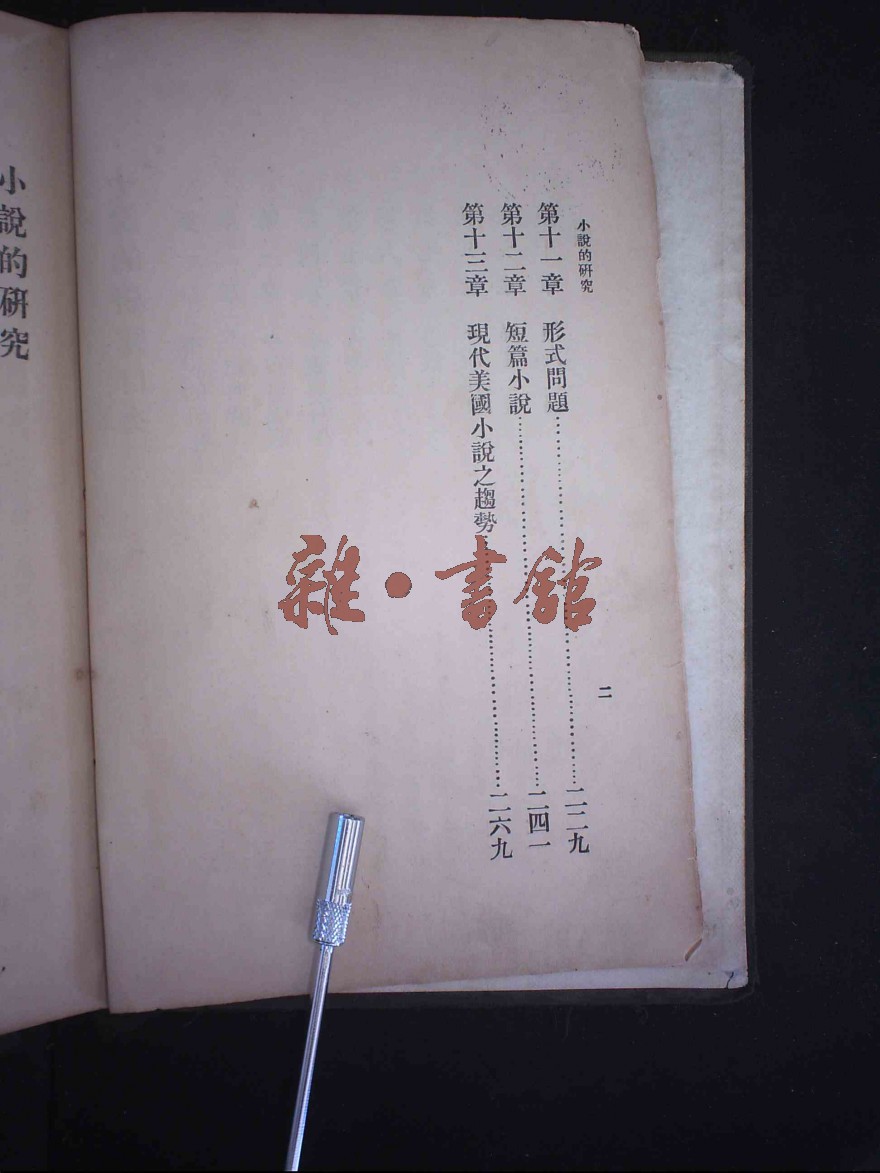 小說的研究
第十一章　形式問題……二二九
第十二章　短篇小說……二四一
第十三章　現代美國小說之趨勢……二六九
二
小說的研究
雜·書館